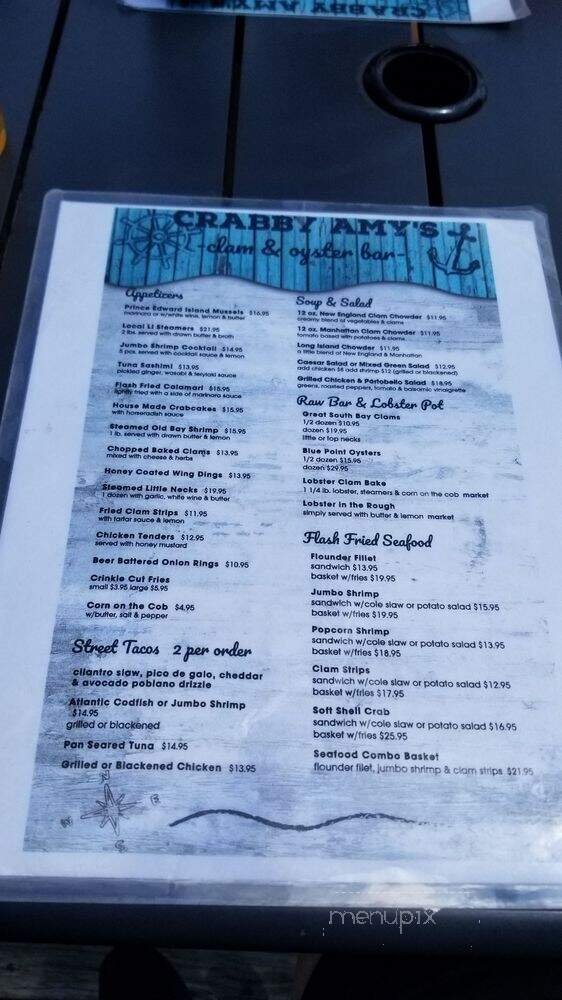 CRABBY AMY'S
CRABBY AMY'S
-clam & oyster bar-
Appetizers
Prince Edward Island Mussels $16.95
marinara or w/white wine, lemon & butter
Local LI Steamers $21.95
2 lbs. served with drawn butter & broth
Jumbo Shrimp Cocktail $14.95
5 pcs. served with cocktail sauce & lemon
Tuna Sashimi $13.95
pickled ginger, wasabi & teriyaki sauce
Flash Fried Calamari $15.95
lightly fried with a side of marinara sauce
House Made Crabcakes $15.95
with horseradish sauce
Steamed Old Bay Shrimp $15.95
1 lb. served with drawn butter & lemon
Chopped Baked Clams $13.95
mixed with cheese & herbs
Honey Coated Wing Dings $13.95
Steamed Little Necks $19.95
1 dozen with garlic, white wine & butter
Fried Clam Strips $11.95
with tartar sauce & lemon
Chicken Tenders $12.95
served with honey mustard
Beer Battered Onion Rings $10.95
Crinkle Cut Fries
small $3.95 large $5.95
Corn on the Cob $4.95
w/butter, salt & pepper
Street Tacos 2 per order
cilantro slaw, pico de galo, cheddar
& avocado poblano drizzle
Atlantic Codfish or Jumbo Shrimp
$14.95
grilled or blackened
Pan Seared Tuna $14.95
Grilled or Blackened Chicken $13.95
Soup & Salad
12 oz. New England Clam Chowder $11.95
creamy blend of vegetables & clams
12 oz. Manhattan Clam Chowder $11.95
tomato based with potatoes & clams
Long Island Chowder $11.95
a little blend of New England & Manhattan
Caesar Salad or Mixed Green Salad $12.95
add chicken $6 add shrimp $12 (grilled or blackened)
Grilled Chicken & Portobello Salad $18.95
greens, roasted peppers, tomato & balsamic vinaigrette
Raw Bar & Lobster Pot
Great South Bay Clams
1/2 dozen $10.95
dozen $19.95
little or top necks
Blue Point Oysters
1/2 dozen $15.95
dozen $29.95
Lobster Clam Bake
1 1/4 lb. lobster, steamers & corn on the cob market
Lobster in the Rough
simply served with butter & lemon market
Flash Fried Seafood
Flounder Fillet
sandwich $13.95
basket w/fries $19.95
Jumbo Shrimp
sandwich w/cole slaw or potato salad $15.95
basket w/fries $19.95
Popcorn Shrimp
sandwich w/cole slaw or potato salad $13.95
basket w/fries $18.95
Clam Strips
sandwich w/cole slaw or potato salad $12.95
basket w/fries $17.95
Soft Shell Crab
sandwich w/cole slaw or potato salad $16.95
basket w/fries $25.95
Seafood Combo Basket
flounder filet, jumbo shrimp & clam strips $21.95
N
E
S
W
menupix